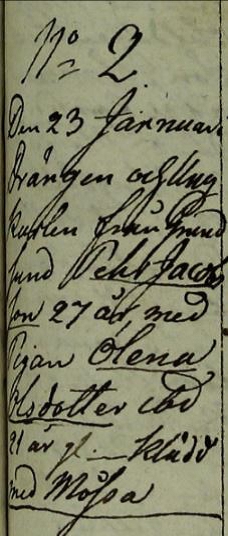 No 2
Den 23 Januari
Drängen och Ung
Karlen från Grund
sund Pehr Jacobs
son 27 år med
Pigan Olena
Olsdotter ibd
21 år klädd
med Mössa